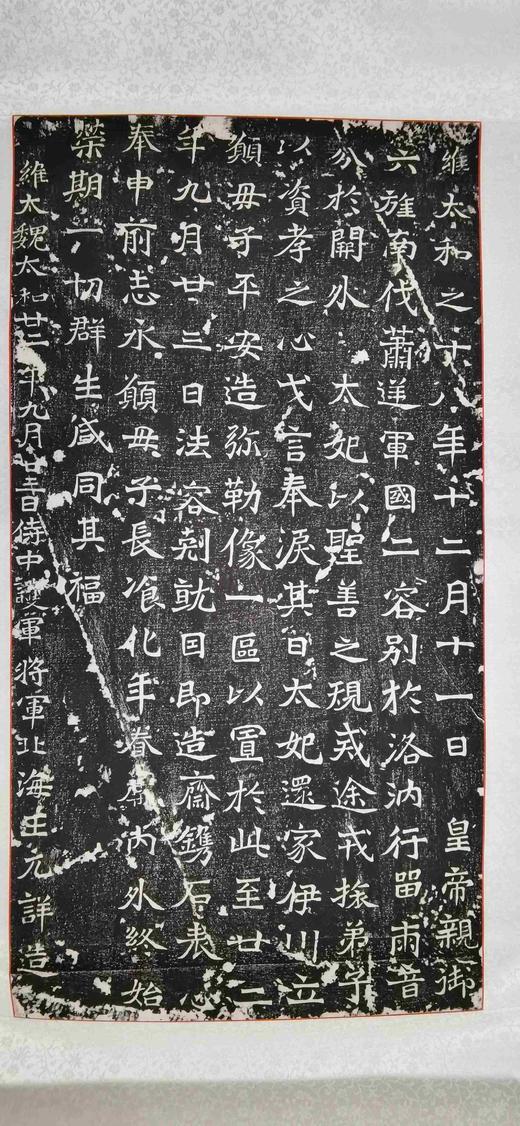 維太和之十八年十二月十一日皇帝親御
六旌南伐蕭逆軍國二容別於洛汭行留兩音
分於闕外太妃以聖善之規戒途戎旅弟子
以資孝之心戈言奉淚其日太妃還家伊川立
願母子平安造弥勒像一區以置於此至廿二
年九月廿三日法容剋就因即造齋鐫石表心
奉申前志永願母子長飡化年眷屬內外終始
榮期一切群生咸同其福
維大魏太和廿二年九月廿三日侍中護軍將軍北海王元詳造